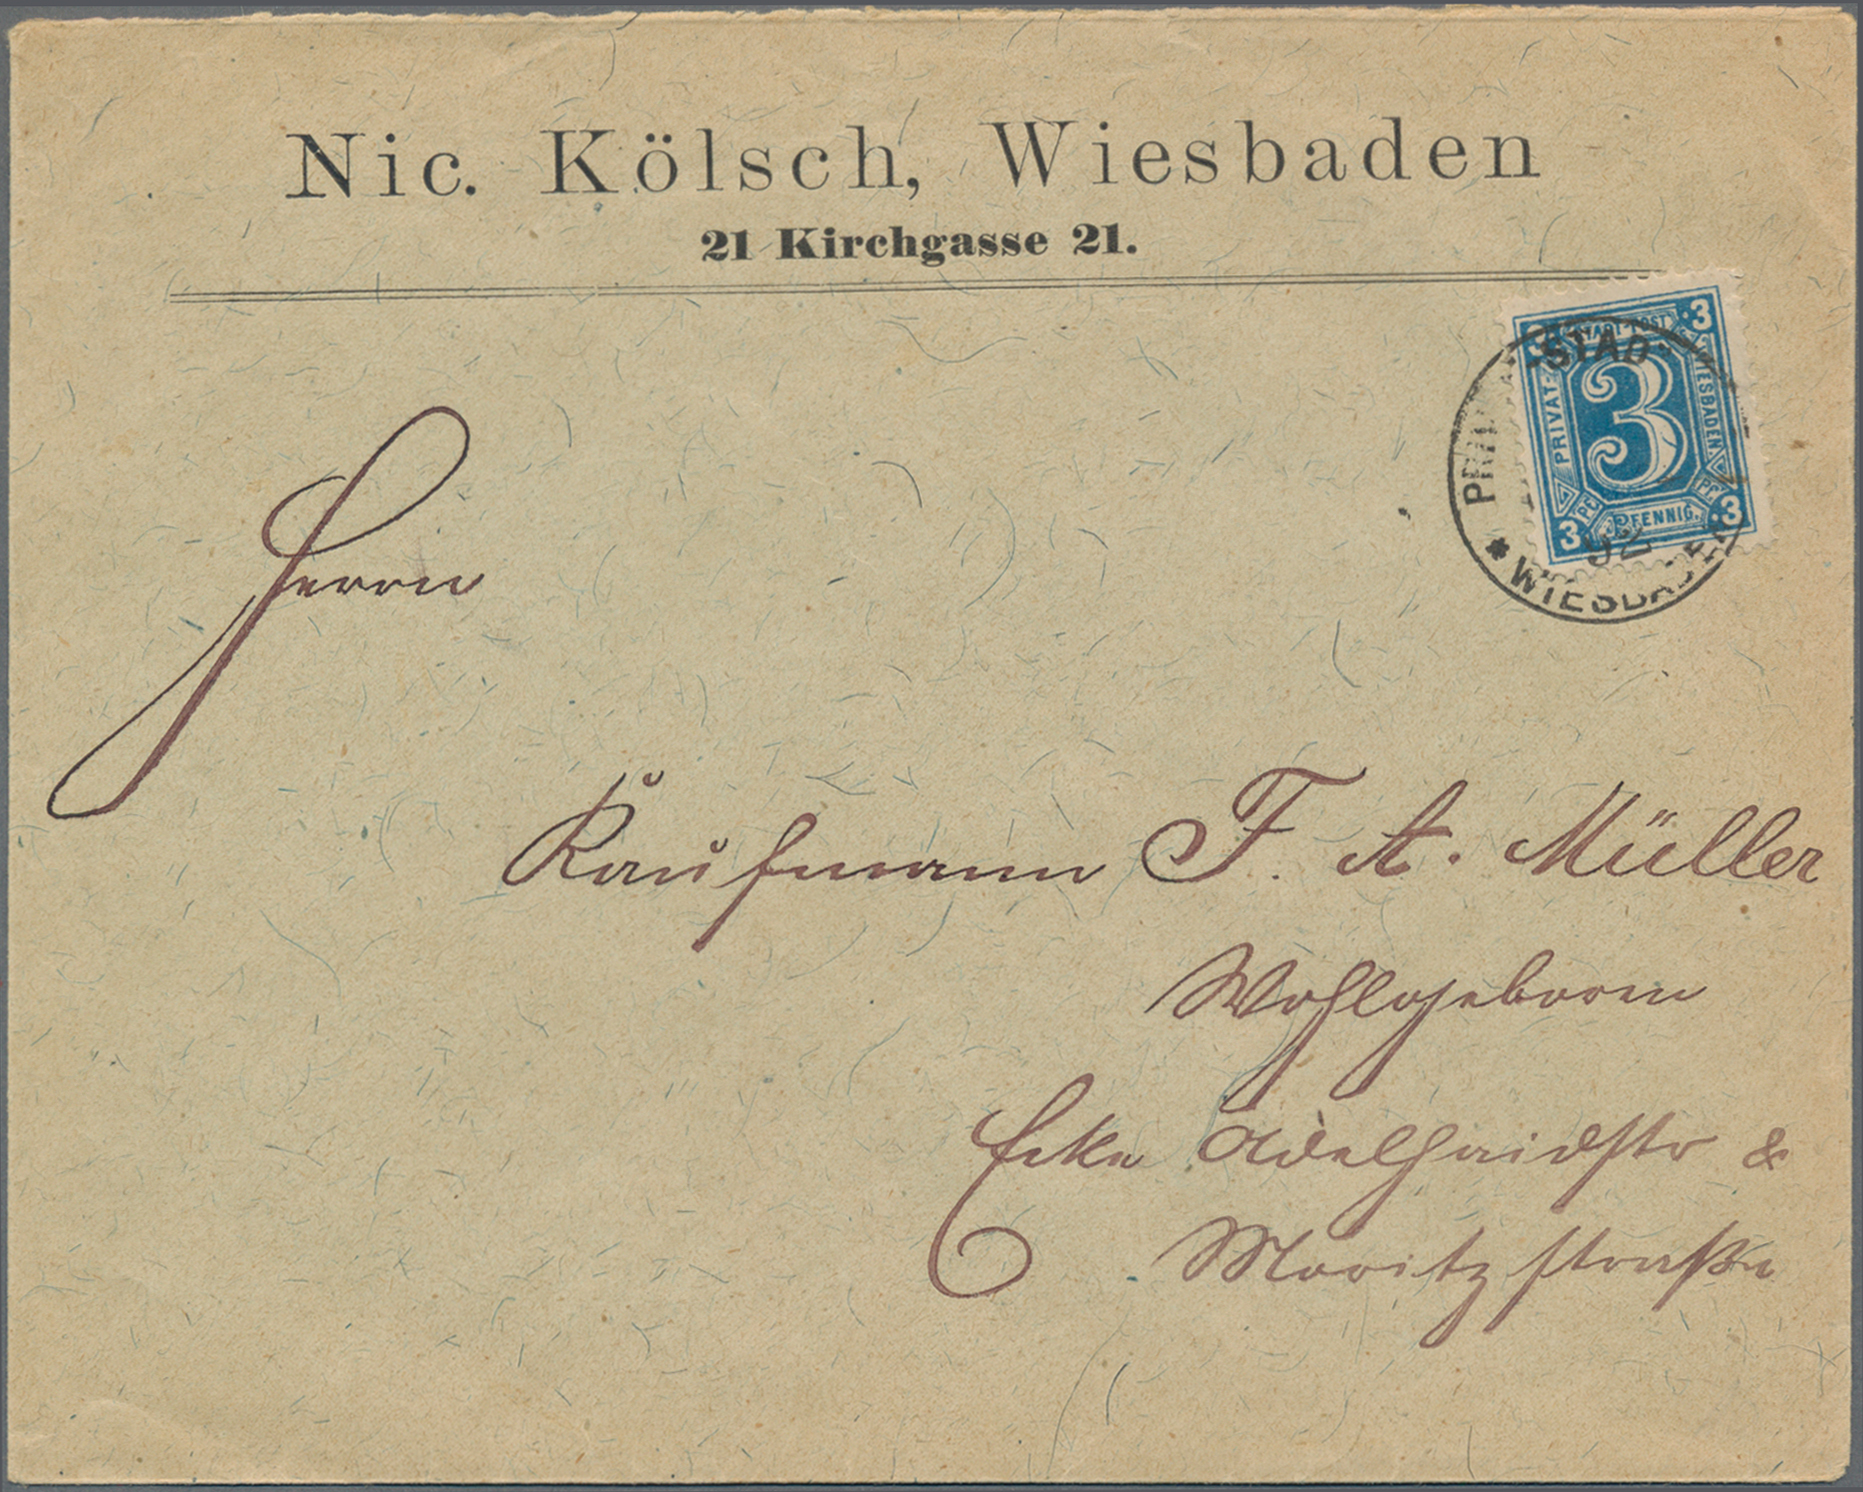 Nic. Kölsch, Wiesbaden
21 Kirchgasse 21.
3 STADT-POST 3
PRIVAT-
WIESBADEN
3
PF. PF.
3 PFENNIG. 3
STAD
92
* WIESBADEN
Herrn
Kaufmann F. A. Müller
Wohlgeboren
Ecke Adelhaidstr &
Moritzstraße